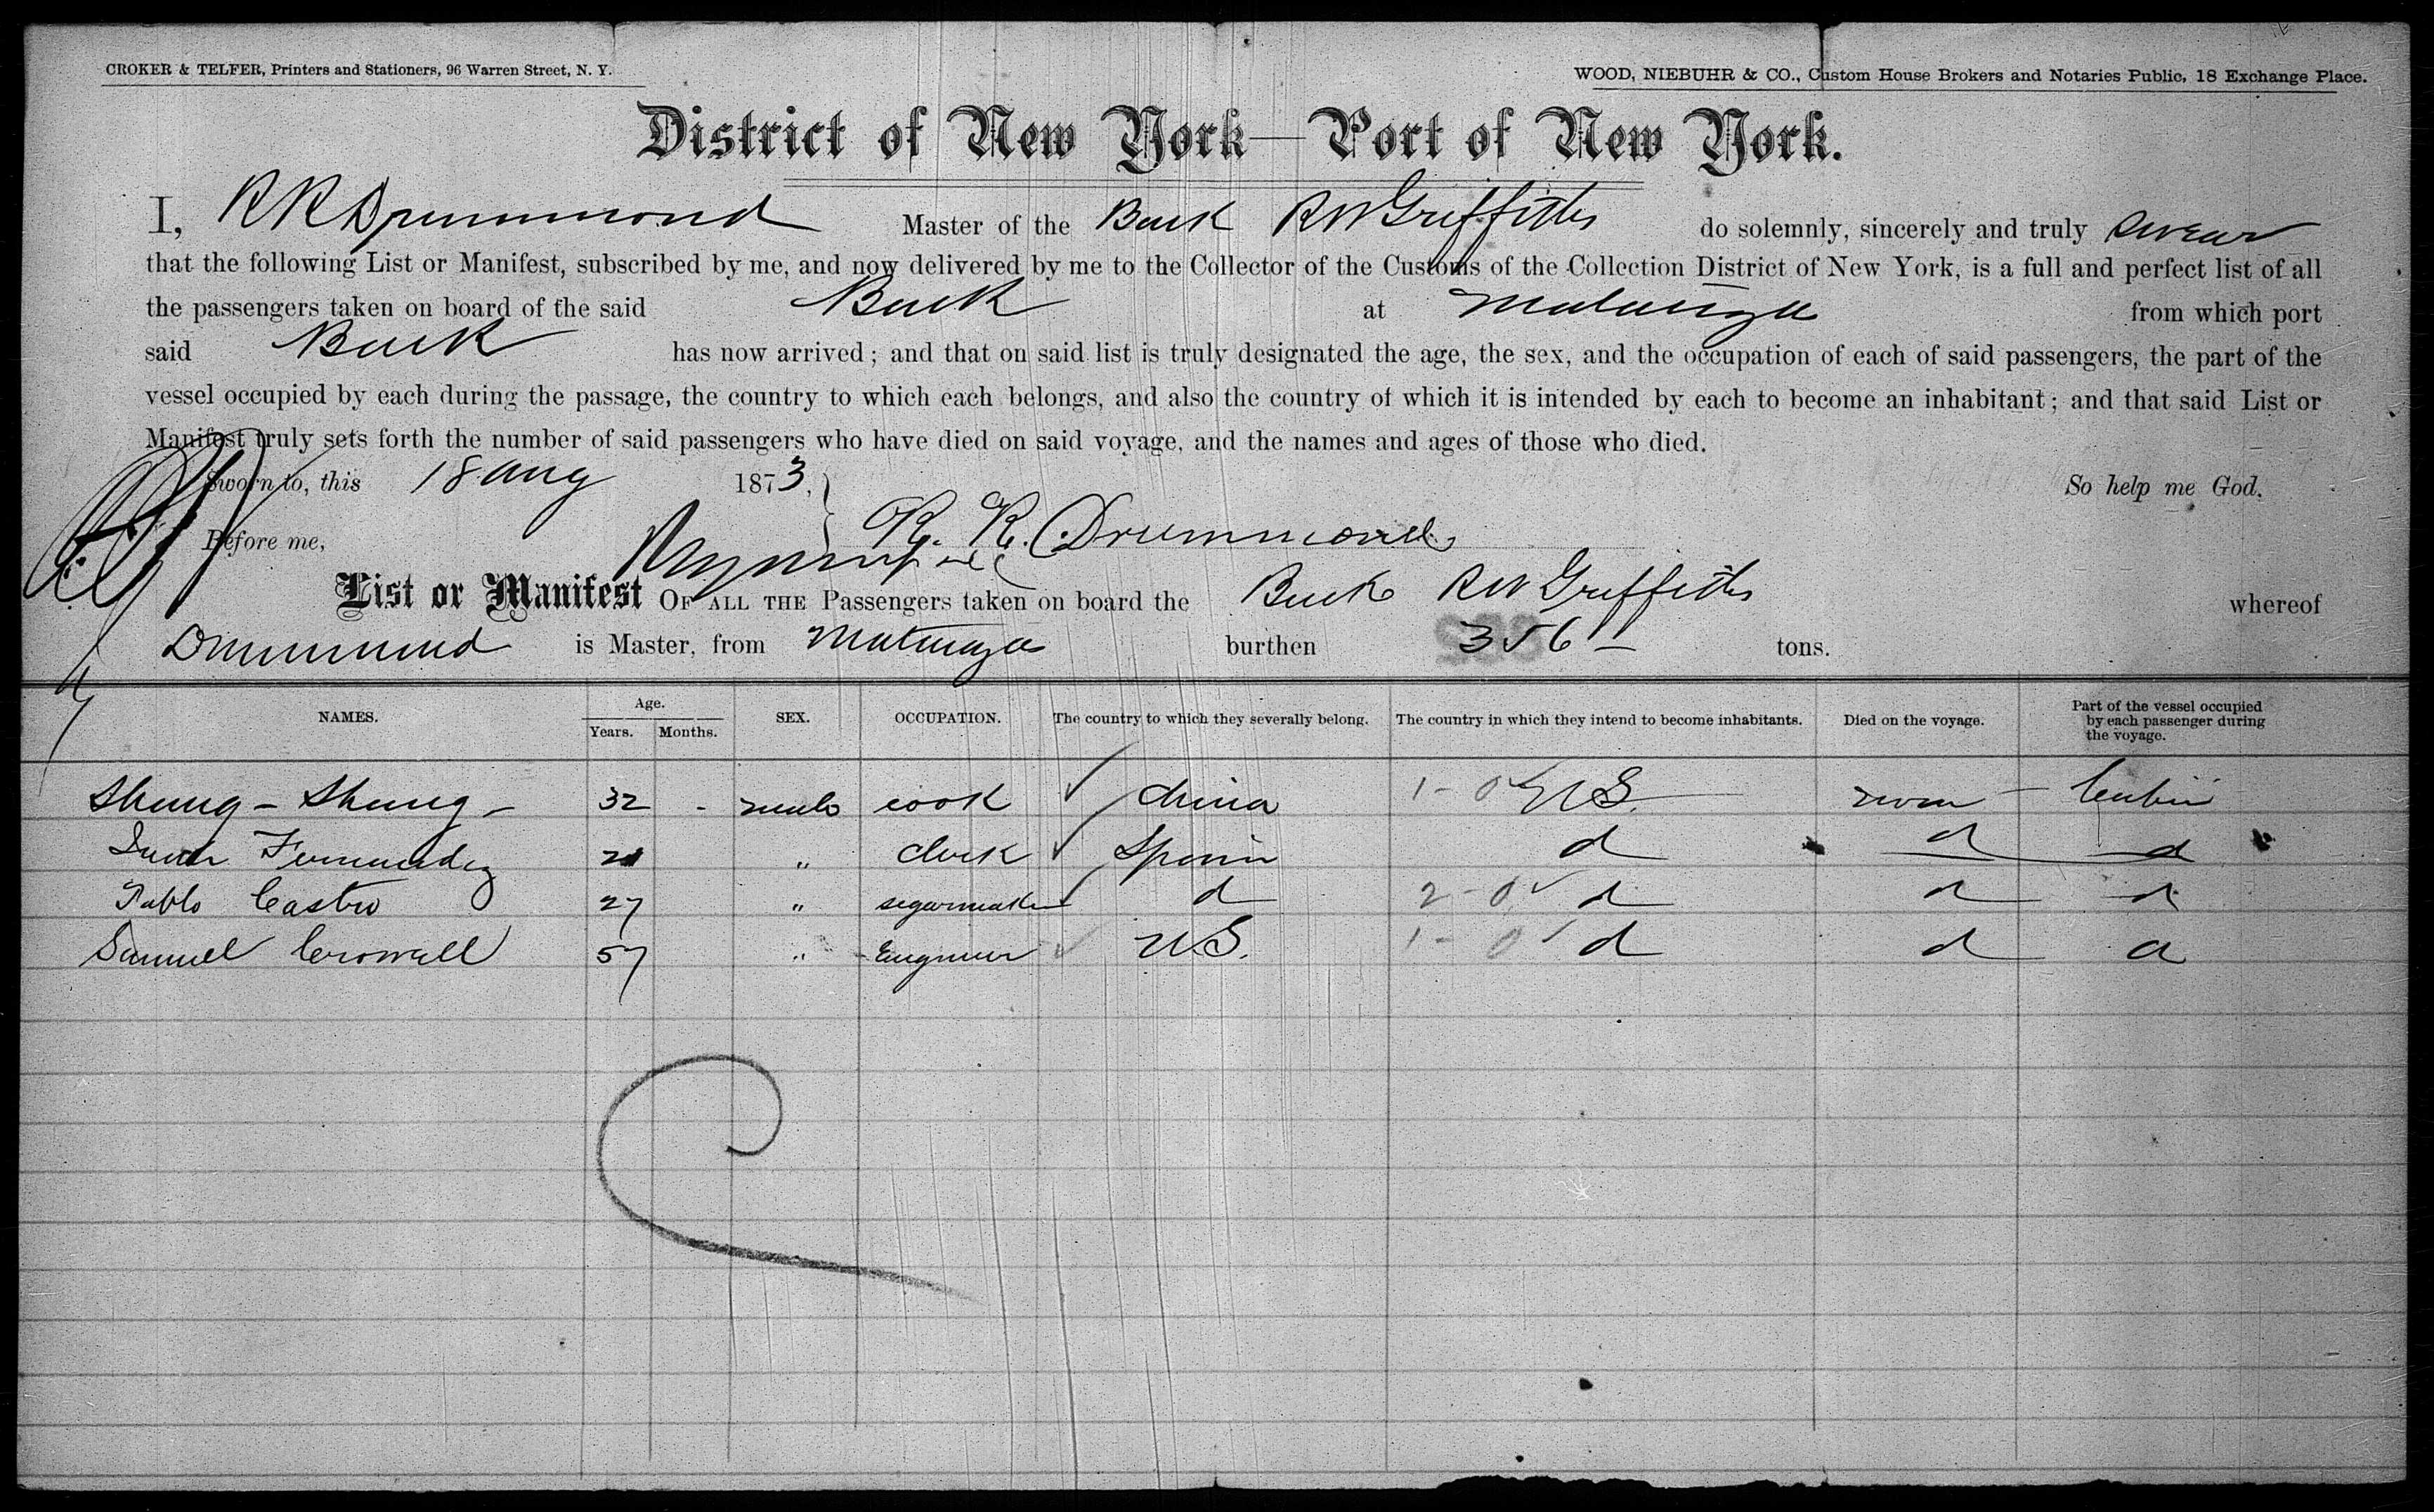 CROKER & TELFER, Printers and Stationers, 96 Warren Street, N. Y.
WOOD, NIEBUHR & CO., Custom House Brokers and Notaries Public, 18 Exchange Place.
District of New York—Port of New York.
I, R R Drummond Master of the Bark R W Griffiths do solemnly, sincerely and truly swear
that the following List or Manifest, subscribed by me, and now delivered by me to the Collector of the Customs of the Collection District of New York, is a full and perfect list of all
the passengers taken on board of the said Bark at Matanza from which port
said Bark has now arrived; and that on said list is truly designated the age, the sex, and the occupation of each of said passengers, the part of the
vessel occupied by each during the passage, the country to which each belongs, and also the country of which it is intended by each to become an inhabitant; and that said List or
Manifest truly sets forth the number of said passengers who have died on said voyage, and the names and ages of those who died.
Sworn to, this 18 Aug 1873, So help me God.
Before me, R. R. Drummond
List or Manifest OF ALL THE Passengers taken on board the Bark R W Griffiths whereof
Drummond is Master, from Matanza burthen 356 tons.
NAMES. Age. Years. Months. SEX. OCCUPATION. The country to which they severally belong. The country in which they intend to become inhabitants. Died on the voyage. Part of the vessel occupied by each passenger during the voyage.
Shung - Shung - 32 - male cook China 1 - 0 US. none - Cabin
Fernandez 21 " Clerk Spain d d d
Pablo Castro 27 " segarmaker d 2 - 0 d d d
Samuel Crowell 57 " Engineer US. 1 - 0 d d d